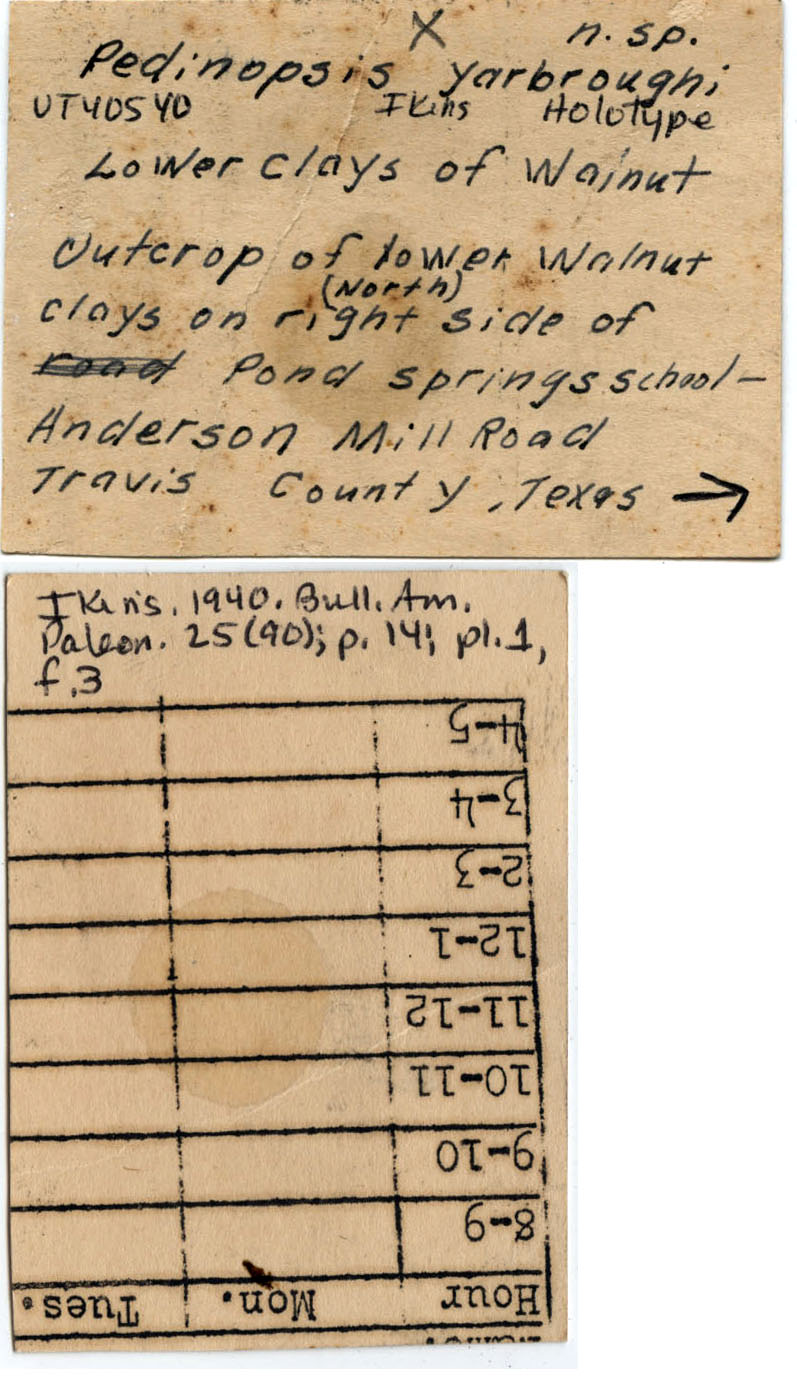 X n. sp.
Pedinopsis yarbroughi
UT40540 Ikins Holotype
Lower clays of Walnut
Outcrop of lower Walnut
(North)
clays on right side of
road Pond springs school-
Anderson Mill Road
Travis County, Texas →
Ikins. 1940. Bull. Am.
Paleon. 25(90); p. 14; pl. 1,
f. 3
4-5
3-4
2-3
12-1
11-12
10-11
9-10
8-9
Hour Mon. Tues.